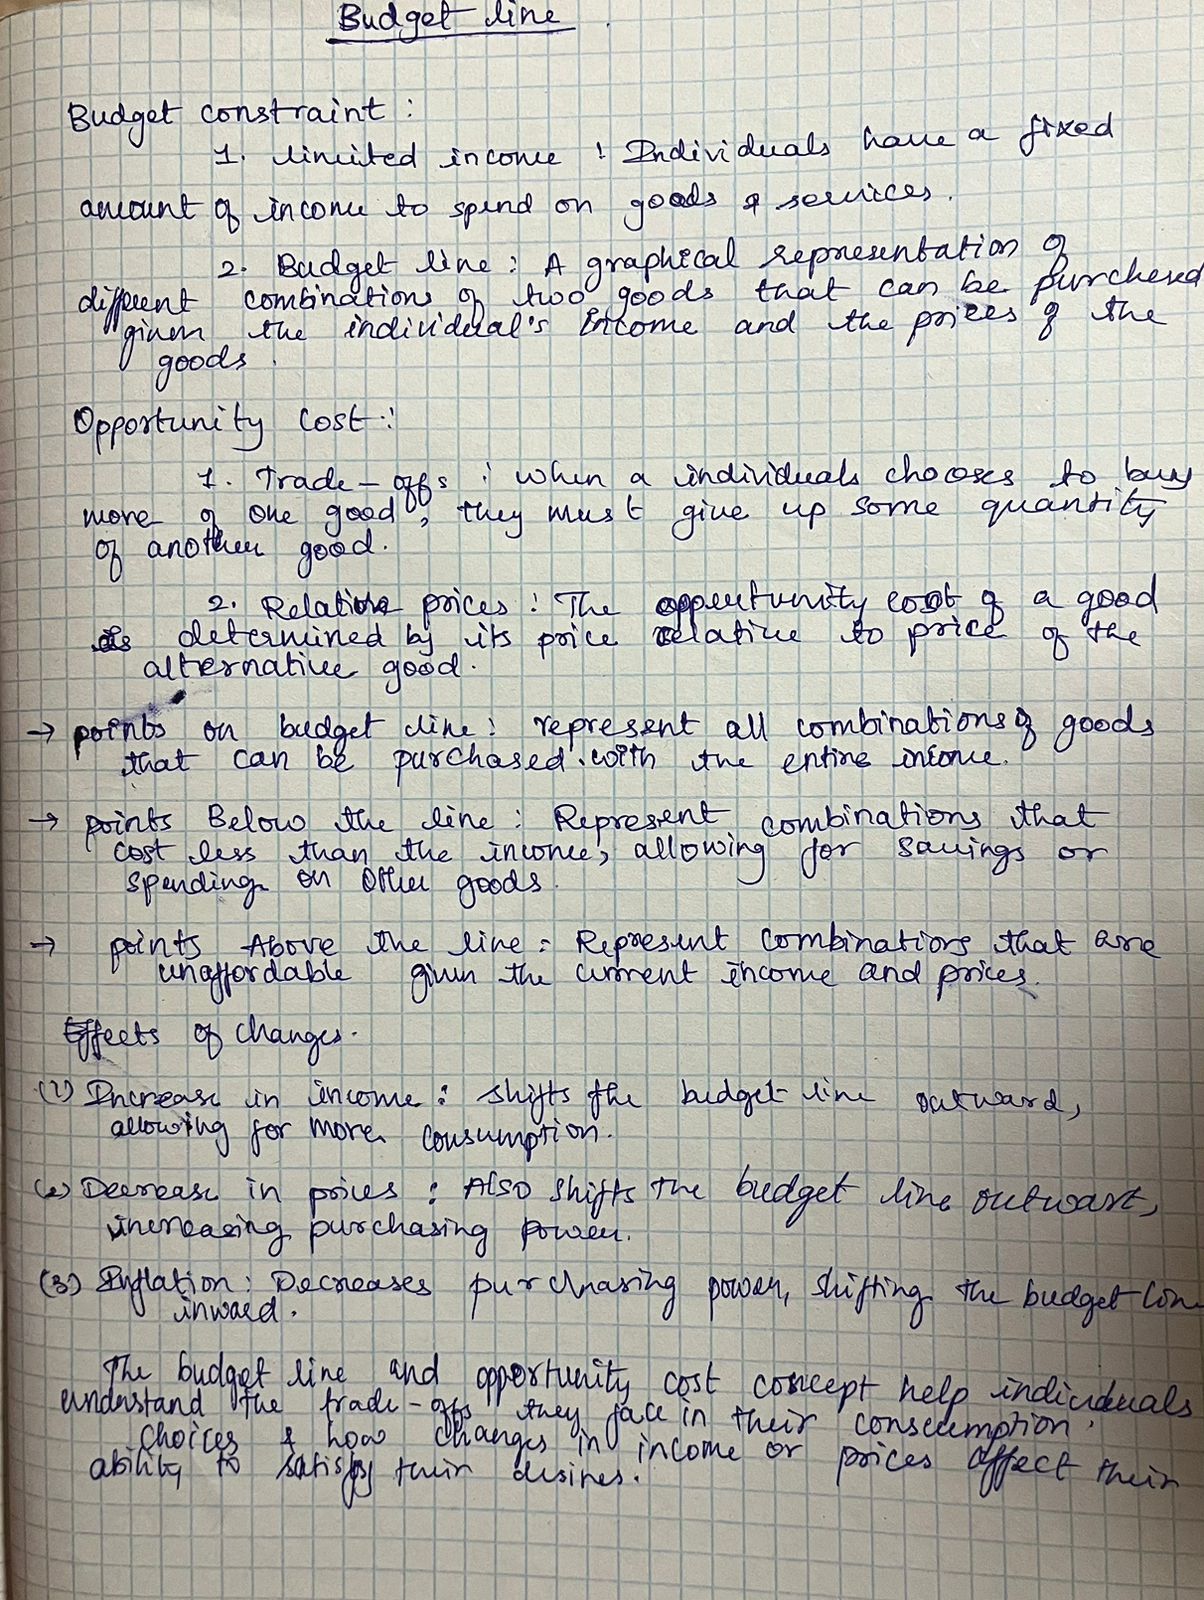 Budget line
Budget constraint :
1. limited income : Individuals have a fixed
amount of income to spend on goods & services.
2. Budget line : A graphical representation of
different combinations of two goods that can be purchered
given the individual's Income and the prices of the
goods.
Opportunity Cost :
1. Trade-offs : when a individuals chooses to buy
more of one good, they must give up some quantity
of another good.
2. Relative prices : The opportunity cost of a good
is determined by its price relative to price of the
alternative good.
→ points on budget line : represent all combinations of goods
that can be purchased with the entire income.
→ points Below the line : Represent combinations that
cost less than the income, allowing for savings or
spending on other goods.
→ points Above the line : Represent combinations that are
unaffordable given the current income and prices.
Effects of changes.
(1) Increase in income : shifts the budget line outward,
allowing for more consumption.
(2) Decrease in prices : Also shifts the budget line outwart,
increasing purchasing power.
(3) Inflation : Decreases purchasing power, shifting the budget line
inward.
The budget line and opportunity cost concept help individuals
understand the trade-offs they face in their consumption
choices & how changes in income or prices affect their
ability to satisfy their desires.